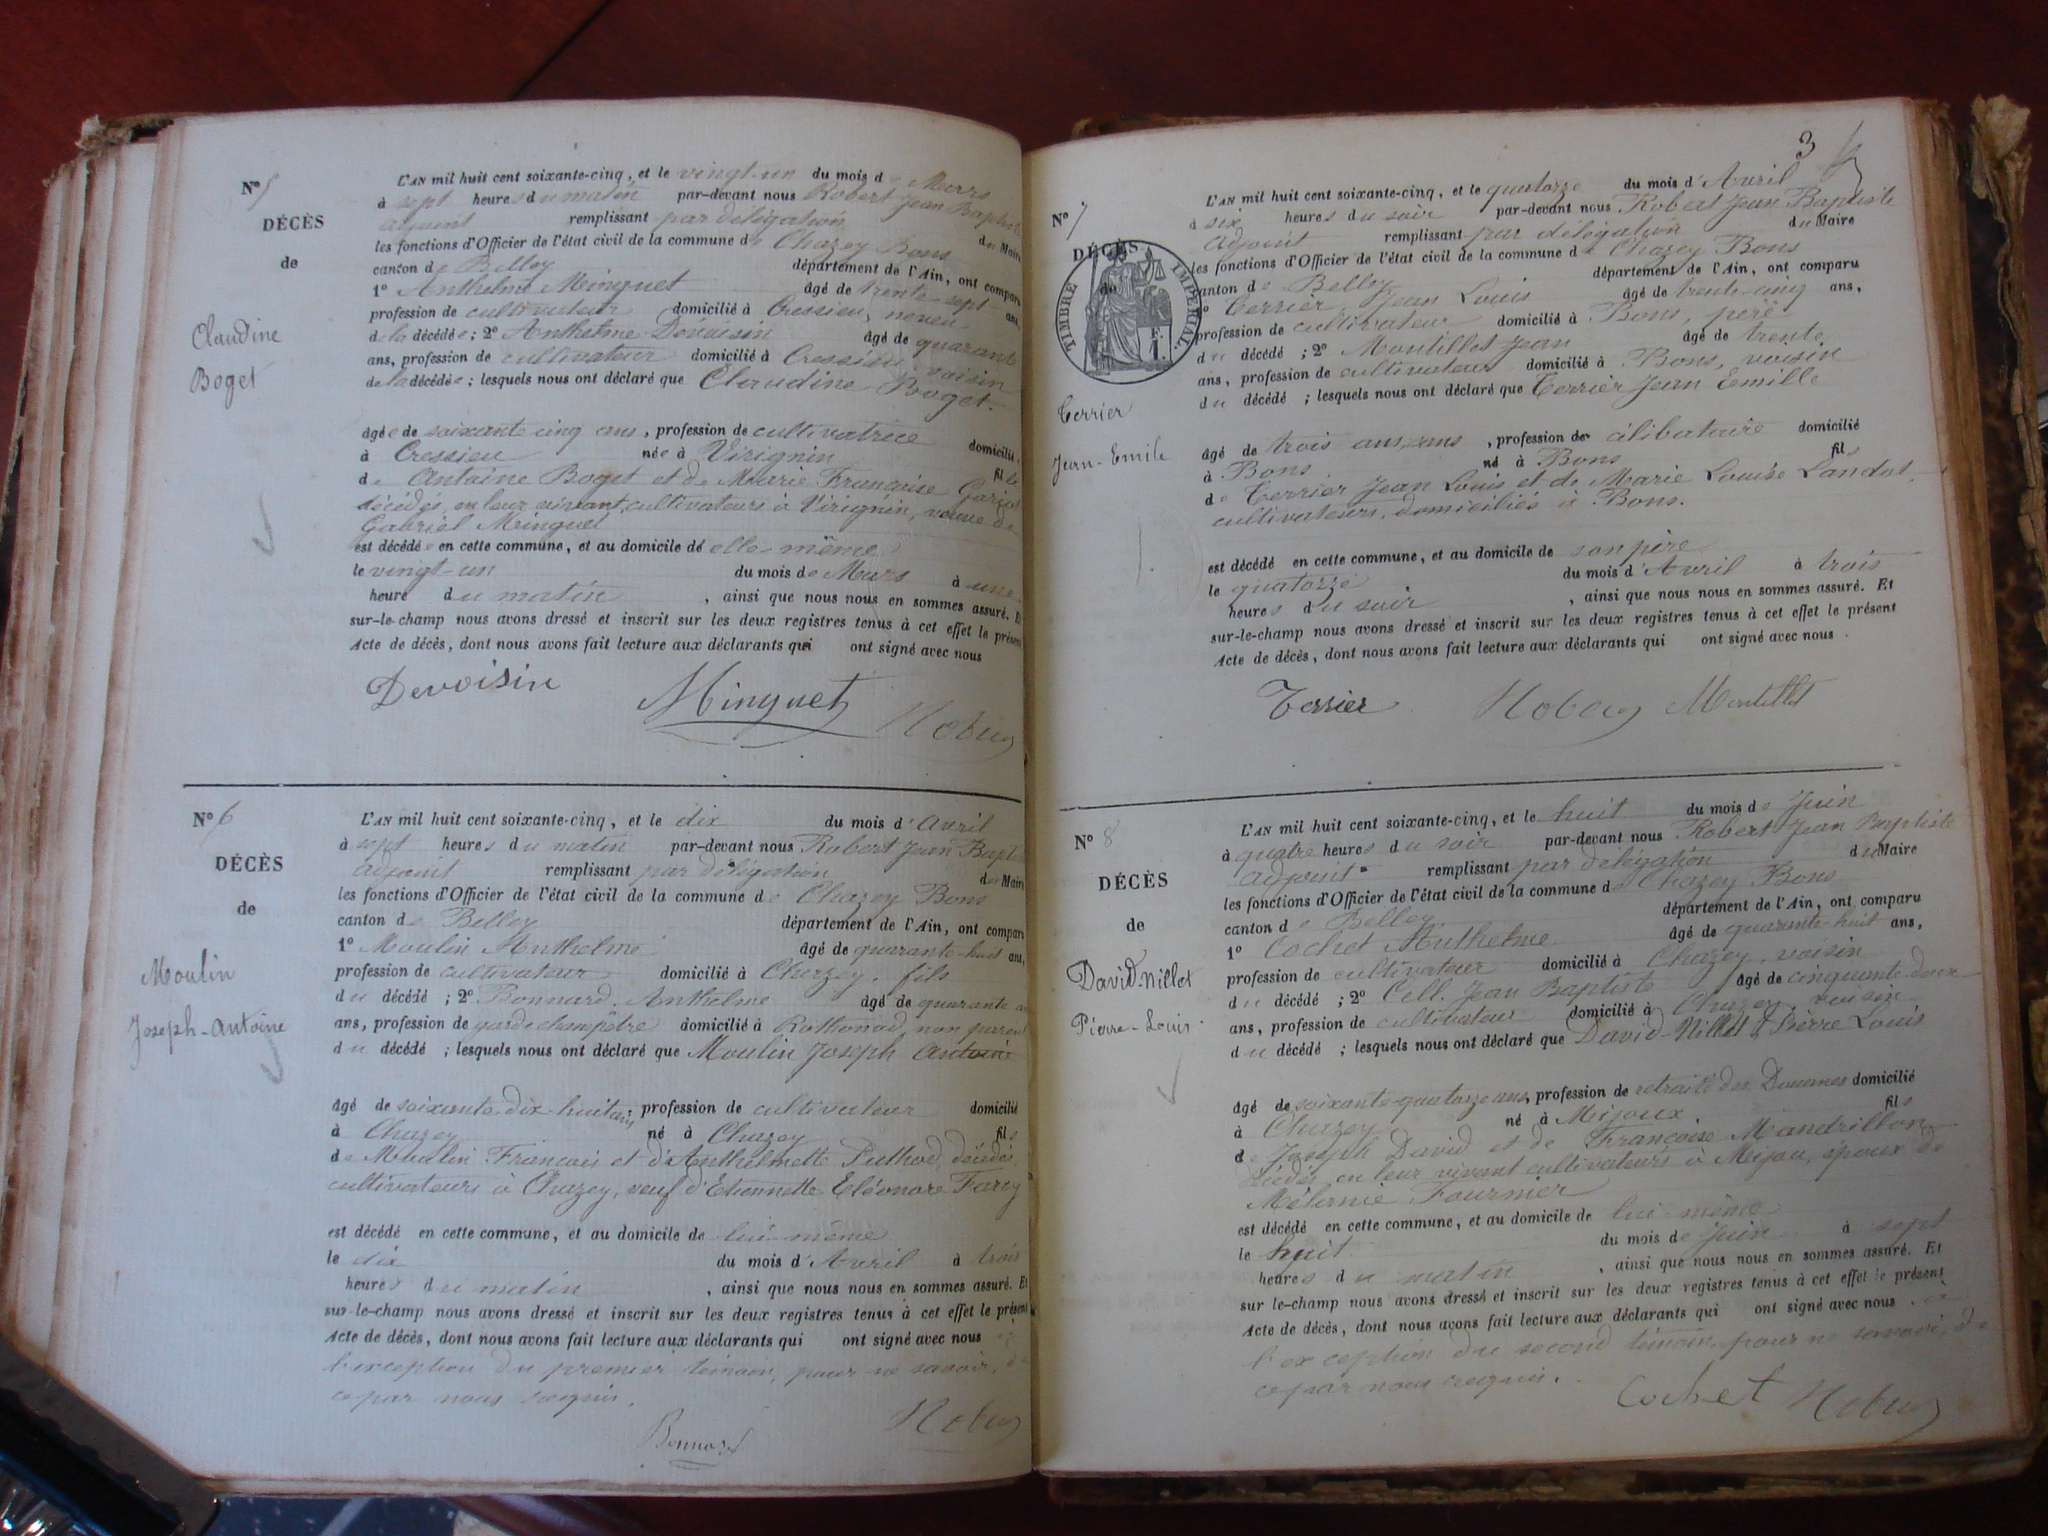 N° 5
DÉCÈS
de
Claudine
Boget
L'AN mil huit cent soixante-cinq, et le vingt-un du mois de Mars
à sept heures du matin par-devant nous Robert Jean Baptiste
adjoint remplissant par délégation du Maire
les fonctions d'Officier de l'état civil de la commune de Chazey Bons
canton de Belley département de l'Ain, ont comparu
1° Anthelme Minguet âgé de trente-sept ans,
profession de cultivateur domicilié à Cressieu, neveu
de la décédée ; 2° Anthelme Devoisin âgé de quarante
ans, profession de cultivateur domicilié à Cressieu, voisin
de la décédée ; lesquels nous ont déclaré que Claudine Boget.
âgée de soixante cinq ans, profession de cultivatrice domicilié
à Cressieu née à Virignin fille
de Antoine Boget et de Marie Françoise
décédés, en leur vivant cultivateurs à Virignin, veuve de
Gabriel Minguet
est décédée en cette commune, et au domicile de elle-même
le vingt-un du mois de Mars à une
heure du matin, ainsi que nous nous en sommes assuré. Et
sur-le-champ nous avons dressé et inscrit sur les deux registres tenus à cet effet le présent
Acte de décès, dont nous avons fait lecture aux déclarants qui ont signé avec nous
Devoisin Minguet Robert
N° 6
DÉCÈS
de
Moulin
Joseph-Antoine
L'AN mil huit cent soixante-cinq, et le dix du mois d'Avril
à sept heures du matin par-devant nous Robert Jean Bapt
adjoint remplissant par délégation du Maire
les fonctions d'Officier de l'état civil de la commune de Chazey Bons
canton de Belley département de l'Ain, ont comparu
1° Moulin Anthelme âgé de quarante-huit ans,
profession de cultivateur domicilié à Chazey, fils
du décédé ; 2° Bonnard Anthelme âgé de quarante
ans, profession de garde champêtre domicilié à Rothonod, non parent
du décédé ; lesquels nous ont déclaré que Moulin Joseph Antoine
âgé de soixante-dix-huit ans, profession de cultivateur domicilié
à Chazey né à Chazey fils
de Moulin François et d'Anthelmette Puthod, décédés,
cultivateurs à Chazey, veuf d'Etiennette Eléonore Farcy
est décédé en cette commune, et au domicile de lui-même
le dix du mois d'Avril à trois
heures du matin, ainsi que nous nous en sommes assuré. Et
sur-le-champ nous avons dressé et inscrit sur les deux registres tenus à cet effet le présent
Acte de décès, dont nous avons fait lecture aux déclarants qui ont signé avec nous à
l'exception du premier témoin, pour ne savoir, de
ce par nous requis.
Bonnard Robert
3
N° 7
DÉCÈS
de
TIMBRE IMPÉRIAL
F. 1.
Terrier
Jean-Emile
L'AN mil huit cent soixante-cinq, et le quatorze du mois d'Avril
à six heures du soir par-devant nous Robert Jean Baptiste
adjoint remplissant par délégation du Maire
les fonctions d'Officier de l'état civil de la commune de Chazey Bons
canton de Belley département de l'Ain, ont comparu
1° Terrier Jean Louis âgé de trente-cinq ans,
profession de cultivateur domicilié à Bons, père
du décédé ; 2° Montillet Jean âgé de trente
ans, profession de cultivateur domicilié à Bons, voisin
du décédé ; lesquels nous ont déclaré que Terrier Jean Emille
âgé de trois ans, ans, profession de célibataire domicilié
à Bons né à Bons fils
de Terrier Jean Louis et de Marie Louise
cultivateurs, domiciliés à Bons.
est décédé en cette commune, et au domicile de son père
le quatorze du mois d'Avril à trois
heures du soir, ainsi que nous nous en sommes assuré. Et
sur-le-champ nous avons dressé et inscrit sur les deux registres tenus à cet effet le présent
Acte de décès, dont nous avons fait lecture aux déclarants qui ont signé avec nous.
Terrier Robert Montillet
N° 8
DÉCÈS
de
David-Nillet
Pierre-Louis
L'AN mil huit cent soixante-cinq, et le huit du mois de Juin
à quatre heures du soir par-devant nous Robert Jean Baptiste
adjoint remplissant par délégation du Maire
les fonctions d'Officier de l'état civil de la commune de Chazey Bons
canton de Belley département de l'Ain, ont comparu
1° Cochet Anthelme âgé de quarante-huit ans,
profession de cultivateur domicilié à Chazey, voisin
du décédé ; 2° Cell. Jean Baptiste âgé de cinquante-deux
ans, profession de cultivateur domicilié à Chazey, voisin
du décédé ; lesquels nous ont déclaré que David-Nillet Pierre Louis
âgé de soixante-quatorze ans, profession de retraité des Douanes domicilié
à Chazey né à Mijoux. fils
de Joseph David et de Françoise Mandrillon
décédés en leur vivant cultivateurs à Mijou, époux de
Mélanie Fournier
est décédé en cette commune, et au domicile de lui-même
le huit du mois de juin à sept
heures du matin, ainsi que nous nous en sommes assuré. Et
sur le-champ nous avons dressé et inscrit sur les deux registres tenus à cet effet le présent
Acte de décès, dont nous avons fait lecture aux déclarants qui ont signé avec nous, à
l'exception du second témoin, pour ne savoir, de
ce par nous requis.
Cochet Robert